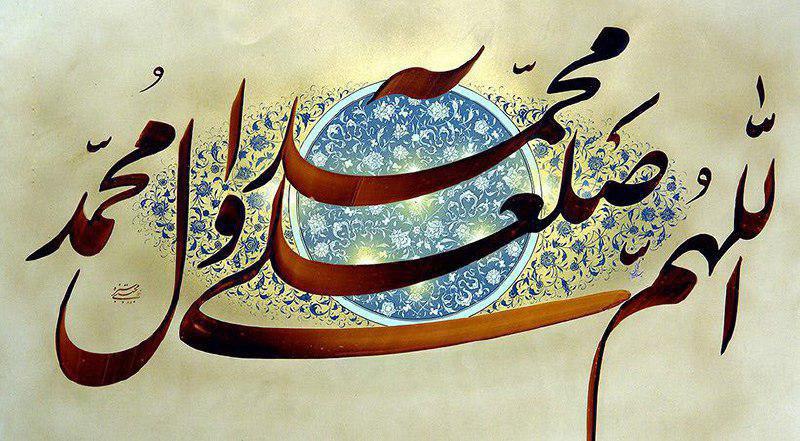 اللّٰهُمَّ صَلِّ علی محمّد وآل محمّد